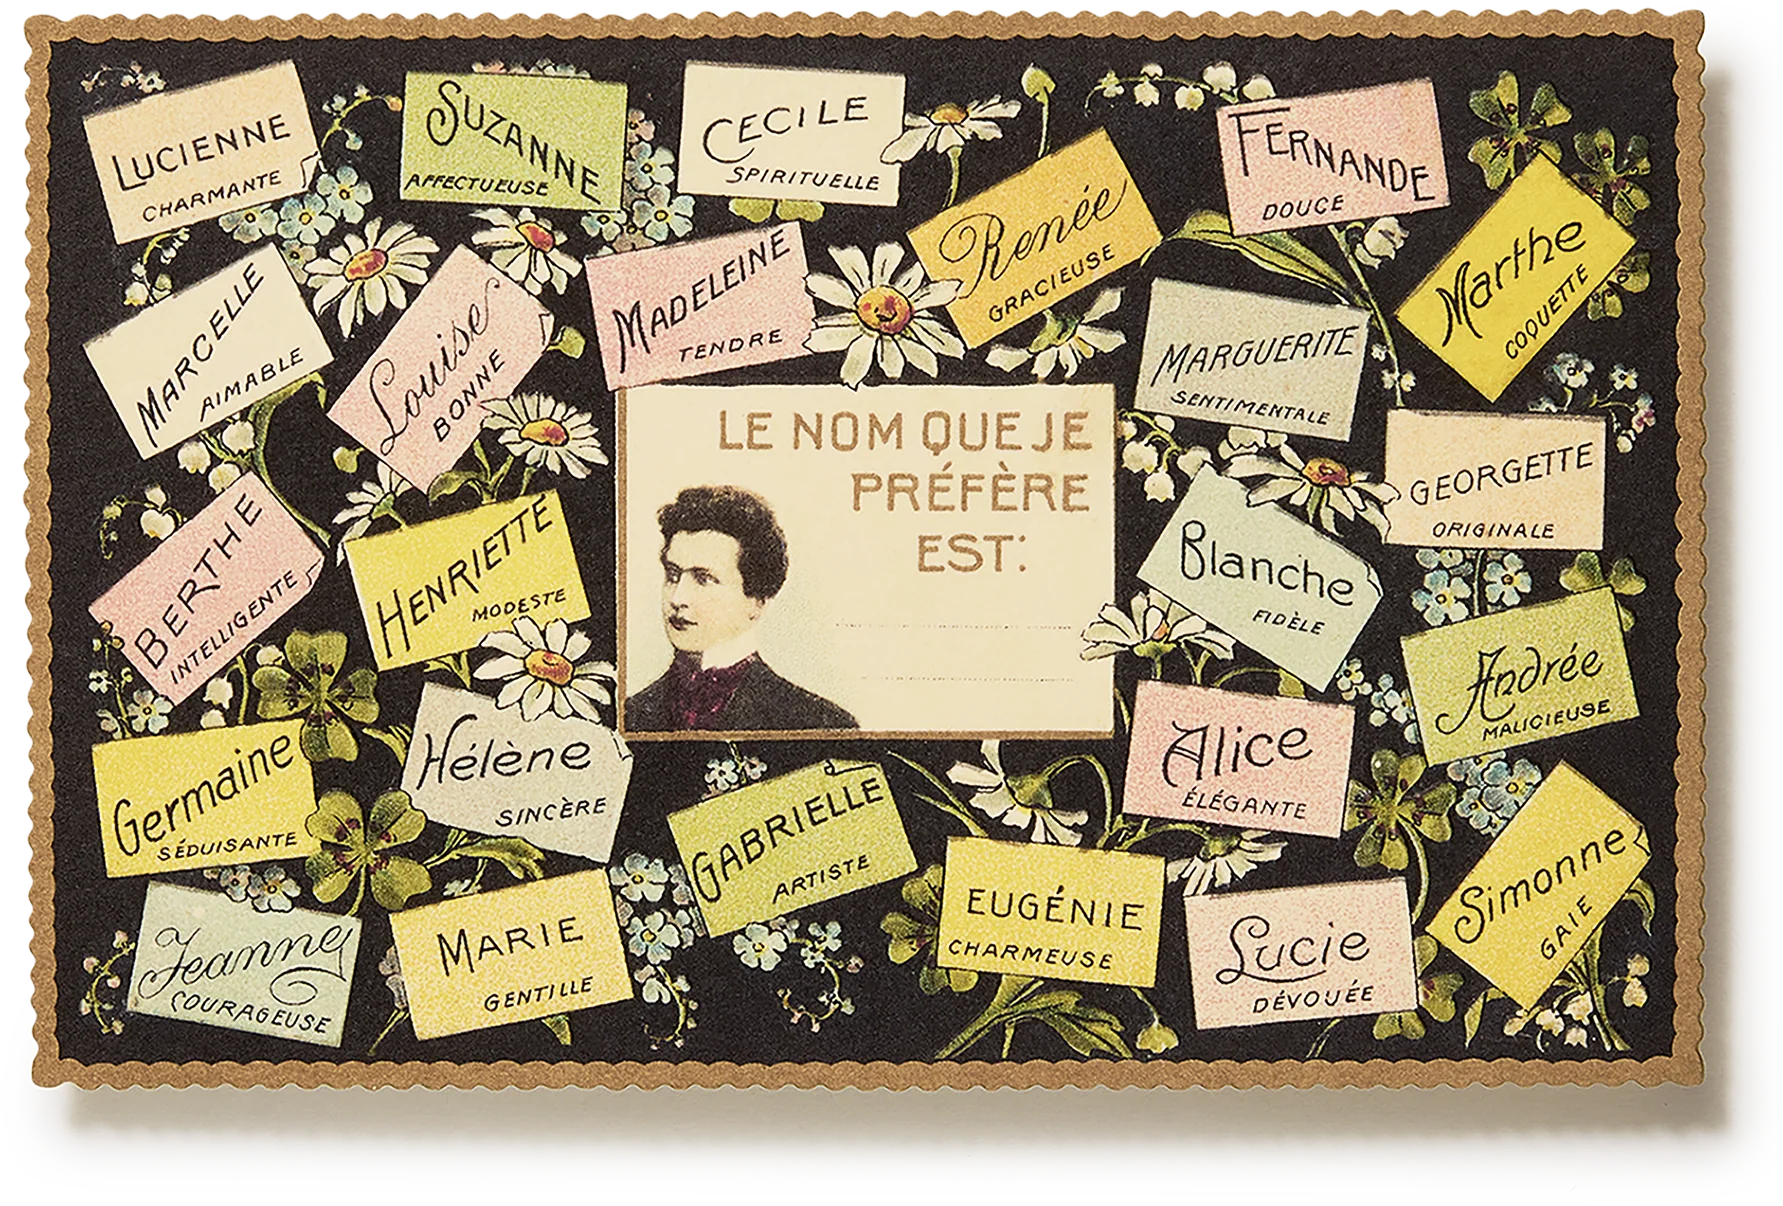 LUCIENNE
CHARMANTE
SUZANNE
AFFECTUEUSE
CECILE
SPIRITUELLE
Renée
GRACIEUSE
FERNANDE
DOUCE
Marthe
COQUETTE
MARCELLE
AIMABLE
Louise
BONNE
MADELEINE
TENDRE
MARGUERITE
SENTIMENTALE
GEORGETTE
ORIGINALE
BERTHE
INTELLIGENTE
HENRIETTE
MODESTE
LE NOM QUE JE
PRÉFÈRE
EST:
Blanche
FIDÈLE
Andrée
MALICIEUSE
Germaine
SÉDUISANTE
Hélène
SINCÈRE
GABRIELLE
ARTISTE
Alice
ÉLÉGANTE
Simonne
GAIE
Jeanne
COURAGEUSE
MARIE
GENTILLE
EUGÉNIE
CHARMEUSE
Lucie
DÉVOUÉE